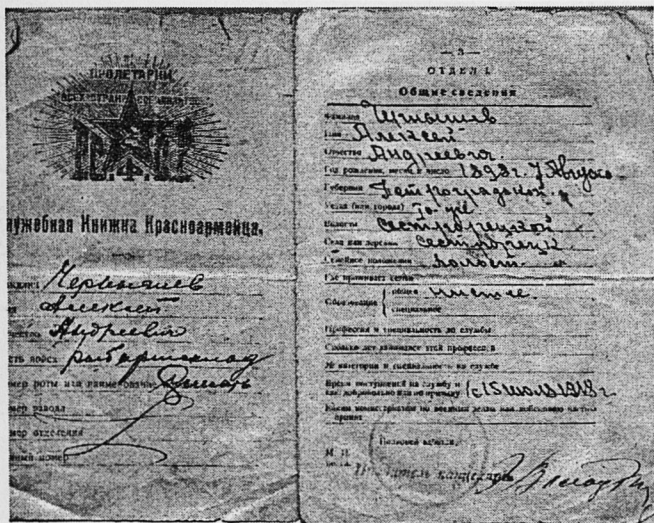 ПРОЛЕТАРИИ
ВСЕХ СТРАН
Р.С.Ф.С.Р.
Служебная Книжка Красноармейца.
Чернышев
Алексей
Андреевич
мер роты или наименование
мер взвода
мер отделения
номер
— 3 —
ОТДЕЛ I.
Общие сведения
Фамилия Чернышев
Имя Алексей
Отчество Андреевич
Год рождения, месяц и число 1898 г. 7 Августа
Губернии Петроградской
Уезда (или города) то-же
Волости Сестрорецкой
Села или деревни Сестрорецк
Семейное положение холост
Где проживает семья
Образование { общее низшее.
специальное
Профессия и специальность до службы
Сколько лет занимался этой професс.
№ категории и специальность на службе
Время поступления на службу и
как: добровольно или по призыву с 15 июля 1918 г.
Каким комиссариатом по военным делам или войсковою частью
принят
М. П.